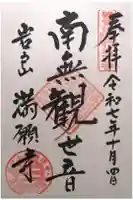 奉拝
令和七年十月四日
南無観世音
岩戸山
満願寺